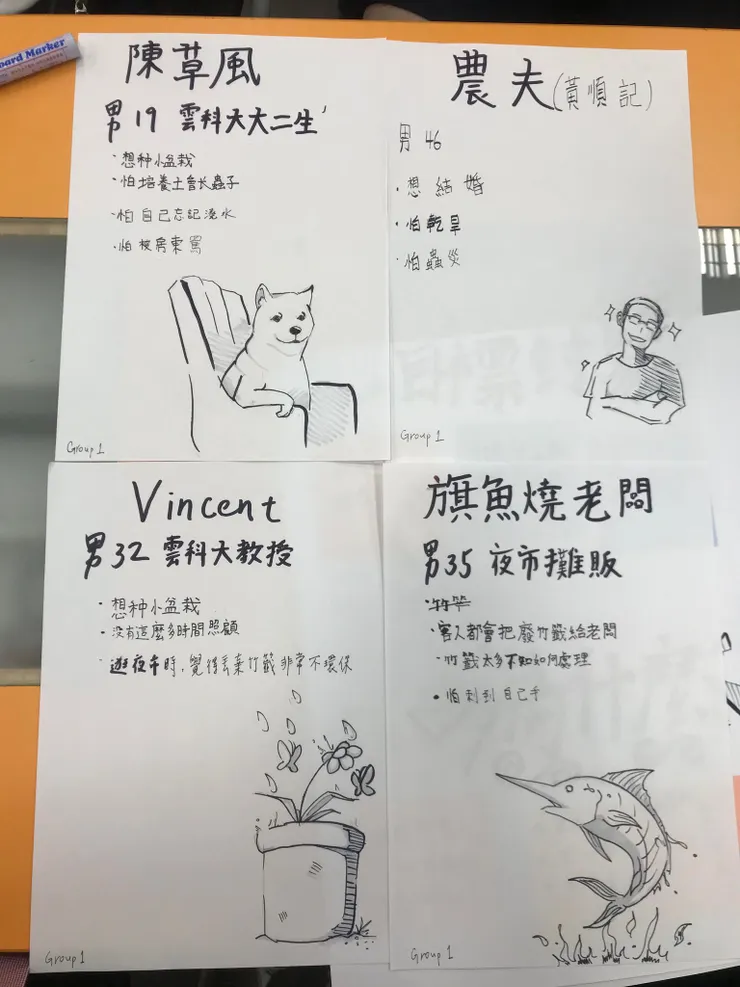 Board Marker
陳草風
男 19 雲科大大二生
·想种小盆栽
·怕培養土會长蟲子
·怕自己忘記澆水
·怕被房東罵
Group 1
農夫(黃順記)
男 46
·想結婚
·怕乾旱
·怕蟲災
Group 1
Vincent
男 32 雲科大教授
·想种小盆栽
·没有這麼多時間照顧
·逛夜市時,覺得丟棄竹籤非常不環保
Group 1
旗魚燒老闆
男 35 夜市攤販
·客人都會把廢竹籤給老闆
·竹籤太多不知如何處理
·怕刺到自己手
Group 1